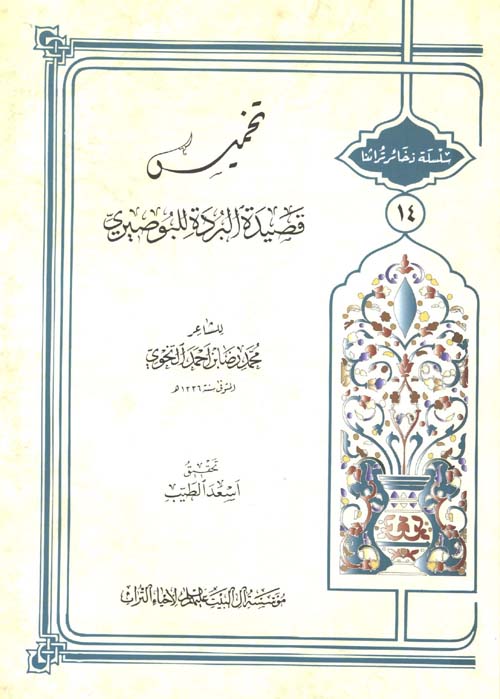 سلسلة ذخائر تراثنا
١٤
تخميس
قصيدة البردة للبوصيري
للشاعر
محمد رضا بن احمد النحوي
المتوفى سنة ١٢٢٦هـ
تحقيق
اسعد الطيب
مؤسسة آل البيت عليهم السلام لإحياء التراث